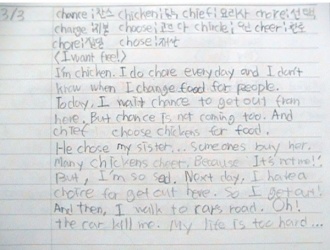 3/3 chance:찬스 chicken:닭 chief:요리사 choice:선택
charge choose:고르다 cheer:환호
chore: chose:
<I want feel>
I'm chicken. I do chore everyday and I don't
know when I change food for people.
Today, I wait chance to get out from
here. But chance is not coming too. And
chief choose chickens for food.
He chose my sister... Someones buy her.
Many chickens cheer, Because It's not me!!
But, I'm so sad. Next day, I have a
choice for get out here. So I get out!
And then, I walk to cars road. Oh!
the car kill me. My life is too hard...